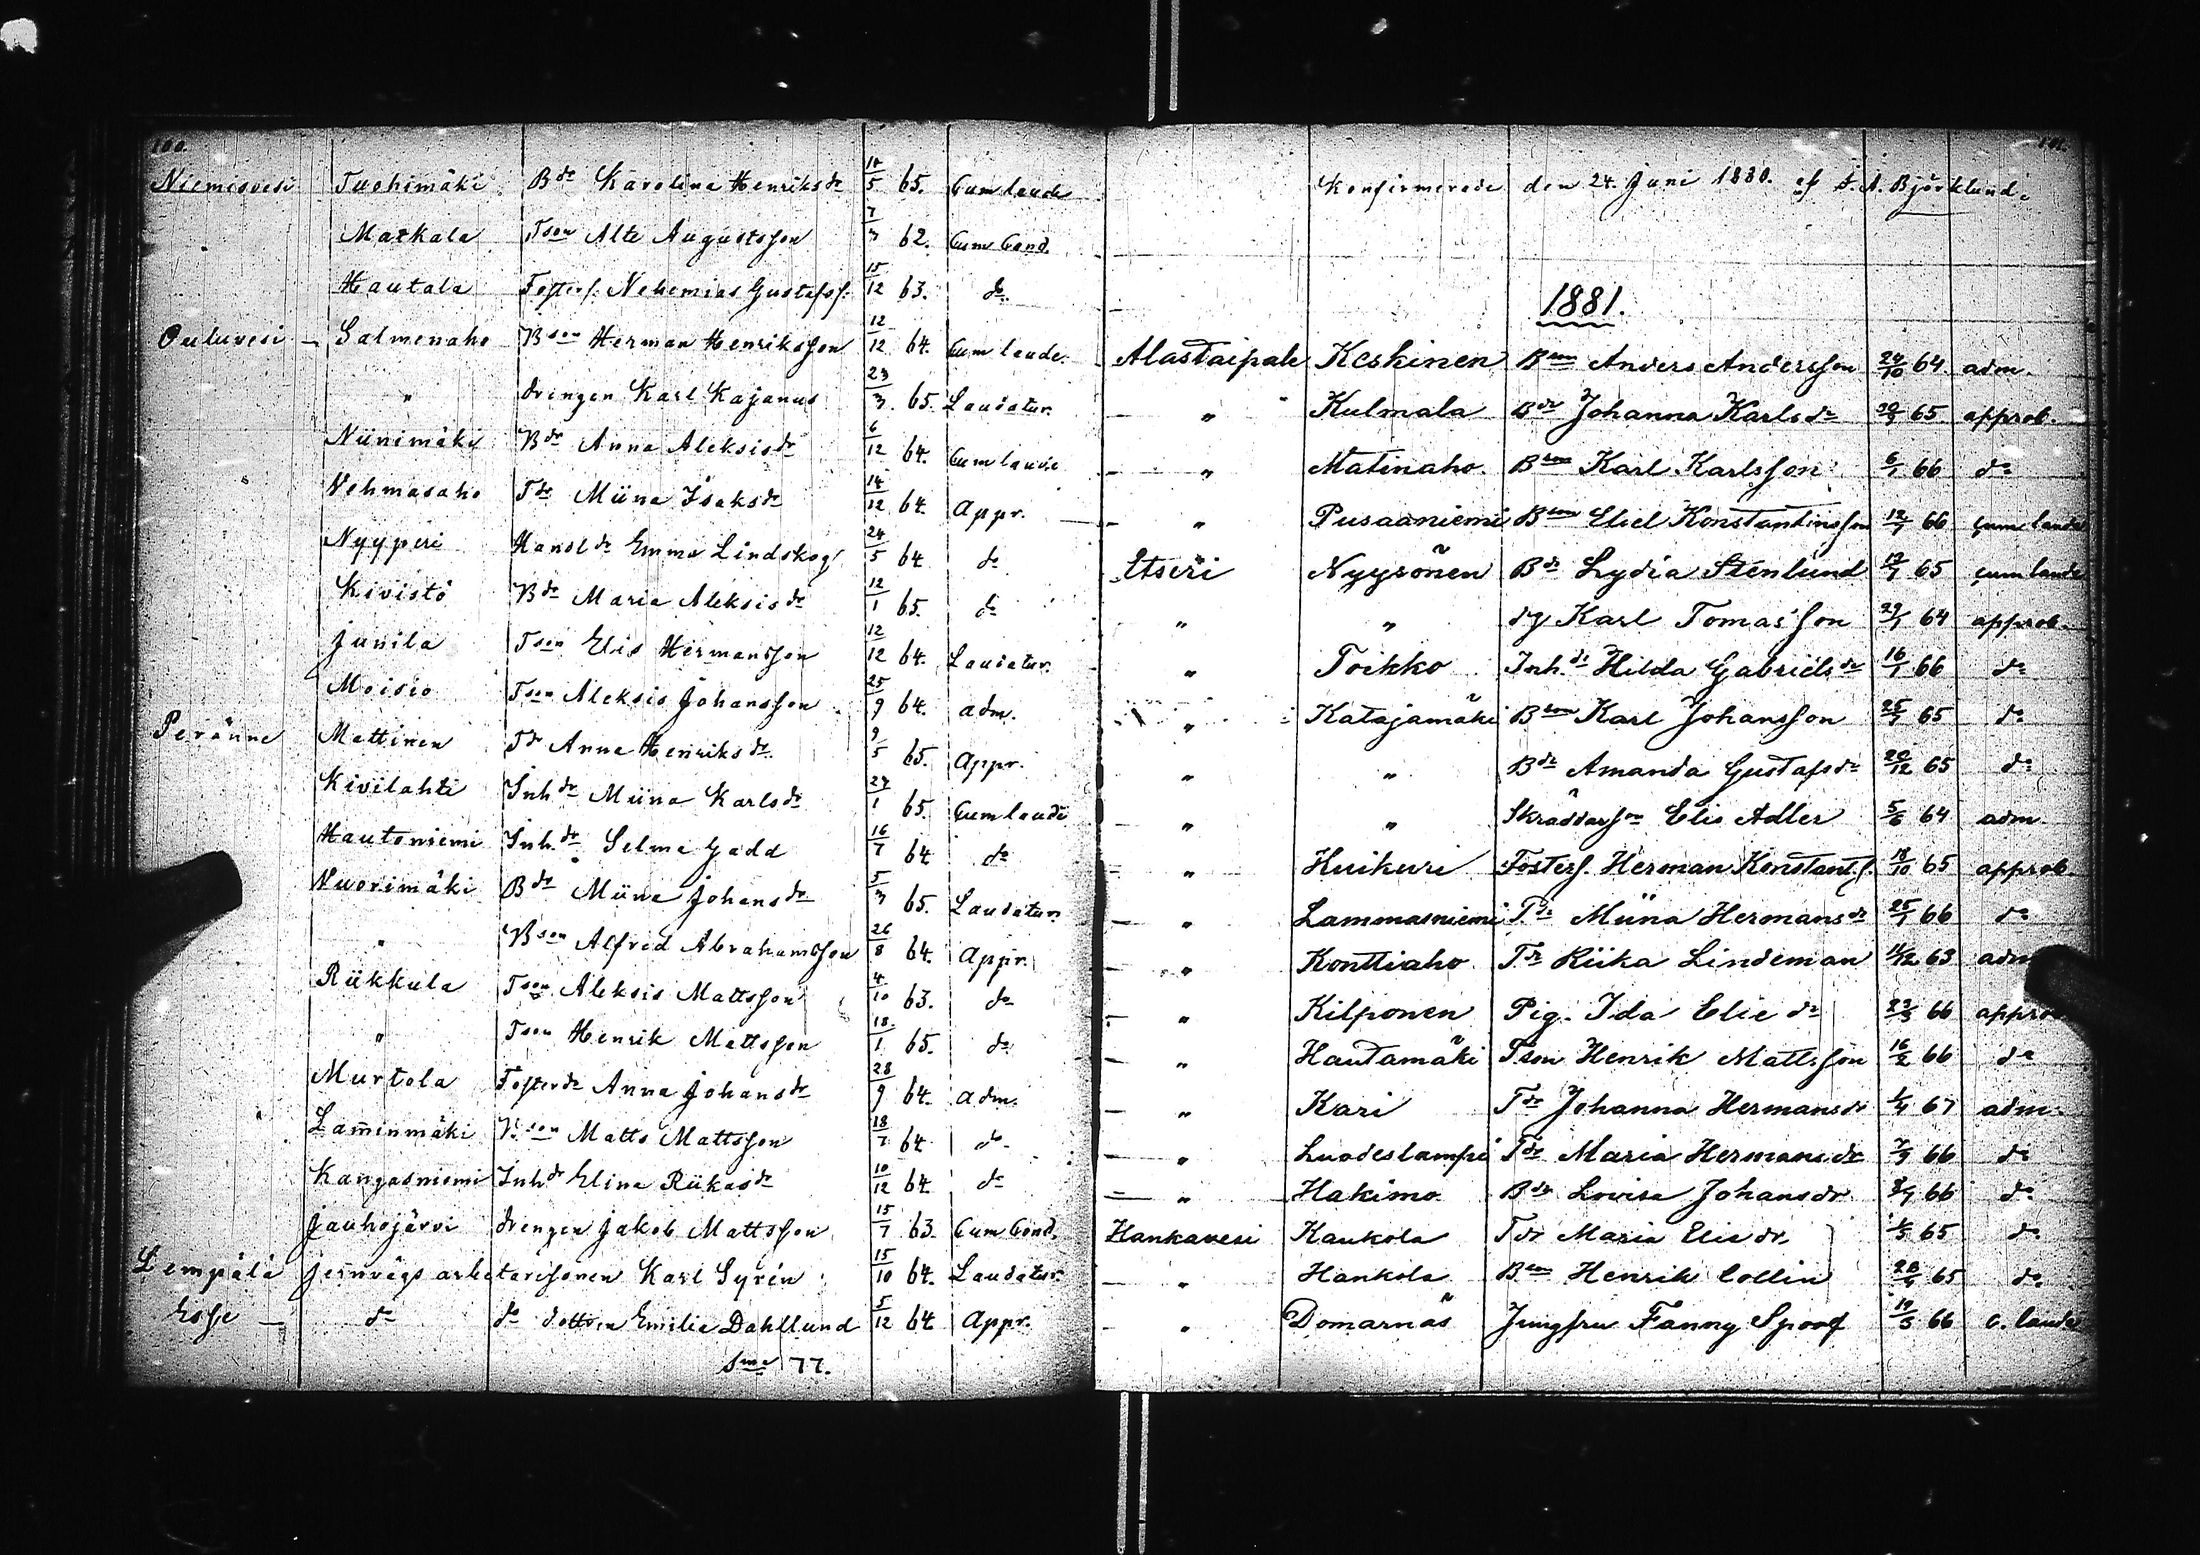 100.
Niemisvesi Tuohimäki Bdr Karolina Henriksdr 10/5 65. Cum laude
Matkala Tson Alte Augustsson 7/3 62. Cum Cond.
Hautala Fosters. Nehemias Gustafss. 15/12 63. do
Ouluvesi – Salmenaho Bson Herman Henriksson 12/12 64. Cum laude.
" drengen Karl Kajanus 23/3 65. Laudatur.
Niinimäki Bdr Anna Aleksisdr 6/12 64. Cum laude
Vehmasaho Tdr Miina Isaksdr 14/12 64. Appr.
Nyyperi Hanoldr Emma Lindskog 24/5 64 do
Kivistö Bdr Maria Aleksisdr 12/1 65. do
Junila Tson Elis Hermansson 12/12 64. Laudatur.
Moisio Tson Aleksis Johansson 25/9 64. adm.
Peränne Mattinen Tdr Anna Henriksdr 9/5 65. Appr.
Kivilahti Inhdr Miina Karlsdr 27/1 65. Cum laude
Hautoniemi Inh.dr Selma Gadd 16/7 64 do
Vuorimäki Bdr Miina Johansdr 5/3 65. Laudatur.
" Bson Alfred Abrahamsson 26/8 64. Appr.
Riikkula Tson Aleksis Mattsson 4/10 63. do
" Tson Henrik Mattsson 18/1 65. do
Murtola Fosterdr Anna Johansdr 28/9 64. adm.
Lamminmäki Bson Matts Mattsson 18/7 64 do
Kangasniemi Inhdr Elina Riikasdr 10/12 64 do
Jauhojärvi drengen Jakob Mattsson 15/7 63. Cum Cond.
Lempälä jernvägsarbetaresonen Karl Syrén 15/10 64. Laudatur.
Esse – do do dottren Emilia Dahllund 5/12 64 Appr.
Sma 77.
101.
Konfirmerade den 24. Juni 1880. af A. Björklund.
1881.
Alastaipale Keskinen Bson Anders Andersson 24/10 64 adm.
" Kulmala Bdr Johanna Karlsdr 65 approb.
" Matinaho Bson Karl Karlsson 6/1 66 do
" Pusaaniemi Bson Eliel Konstantinsson 12/7 66 cum laude
Etseri Nyysönen Bdr Lydia Stenlund 12/7 65 cum laude
" " dg Karl Tomasson 29/1 64 approb.
" Toikko Inh.dr Hilda Gabrielsdr 16/1 66 do
" Katajamäki Bson Karl Johansson 25/7 65 do
" " Bdr Amanda Gustafsdr 20/12 65 do
" " Skräddarson Elis Adler 5/6 64 adm.
" Huikuri Fosters. Herman Konstant.s. 18/10 65 approb.
" Lammasniemi Tdr Miina Hermansdr 25/1 66 do
" Konttiaho Tdr Riika Lindeman 11/12 63 adm
" Kilponen Pig. Ida Eliedr 23/3 66 approb
" Hautamäki Tson Henrik Mattsson 16/2 66 do
" Kari Tdr Johanna Hermansdr 1/4 67 adm.
" Luodeslampi Tdr Maria Hermansdr 7/3 66 do
" Hakimo Bdr Lovisa Johansdr 66 do
Hankavesi Kaukola Tdr Maria Eliedr. 1/3 65 do
" Hankola Bson Henrik Collin 65 do
" Domarnäs Jungfru Fanny Spoof 17/5 66 c. laude